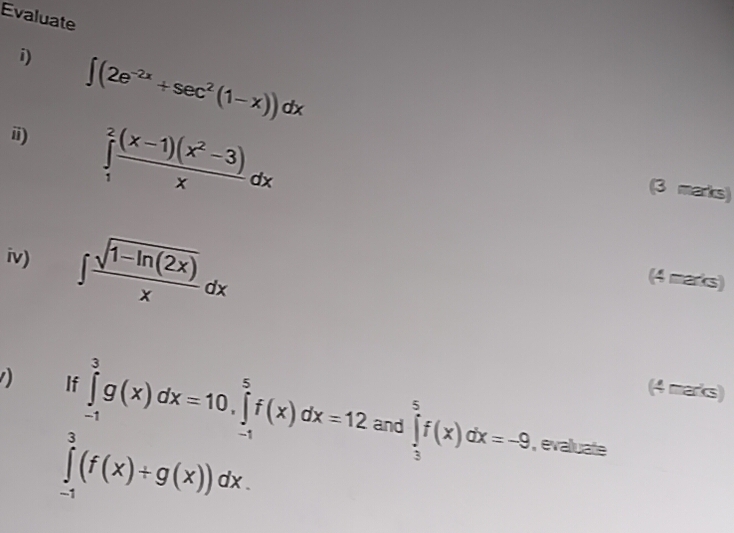 Evaluate
i) ∫(2e⁻²ˣ + sec²(1−x)) dx
ii) ∫₁² (x−1)(x²−3)/x dx
(3 marks)
iv) ∫ √(1−ln(2x))/x dx
(4 marks)
(4 marks)
) If ∫₋₁³ g(x) dx = 10, ∫₋₁⁵ f(x) dx = 12 and ∫₃⁵ f(x) dx = −9, evaluate
∫₋₁³ (f(x) + g(x)) dx.